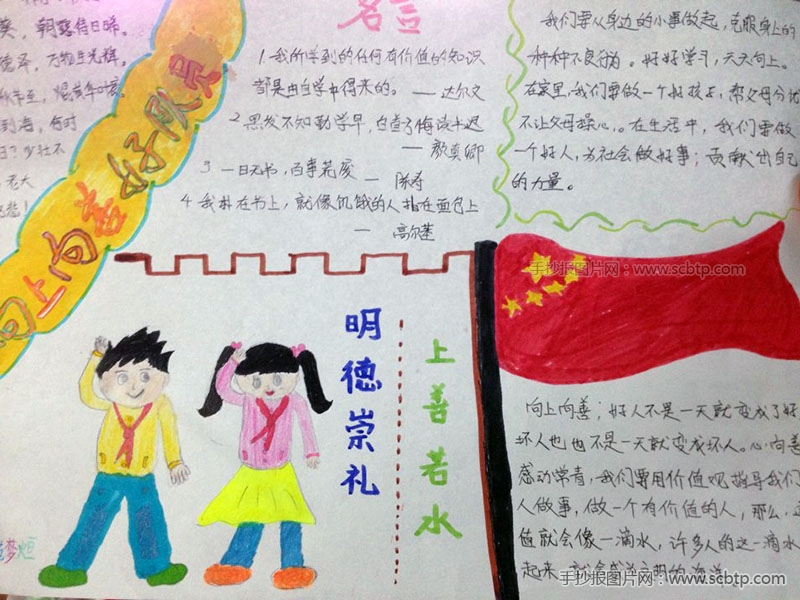 葵，朝露待日晞。
德泽，万物生光辉。
秋节至，焜黄华叶衰。
到海，何时
归？少壮不
老大
悲！
向上向善好队员
名言
1、我所学到的任何有价值的知识
都是由自学中得来的。——达尔文
2、黑发不知勤学早，白首方悔读书迟
——颜真卿
3 一日无书，百事荒废
— 陈寿
4、我扑在书上，就像饥饿的人扑在面包上
— 高尔基
我们要从身边的小事做起，克服身上的
种种不良行为。好好学习，天天向上。
在家里，我们要做一个好孩子，帮父母分忧
不让父母操心。在生活中，我们要做
一个好人，为社会做好事；贡献出自己
的力量。
手抄报图片网：www.scbtp.com
明德崇礼
上善若水
向上向善；好人不是一天就变成了好
坏人也也不是一天就变成坏人。心向善
感动常青，我们要用价值观指导我们
人做事，做一个有价值的人，那么，
值就会像一滴水，许多人的这一滴水
起来，就会成为文明的海洋
梦炬
手抄报图片网：www.scbtp.com